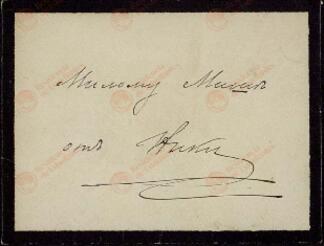 Милому Мишѣ
отъ Ники